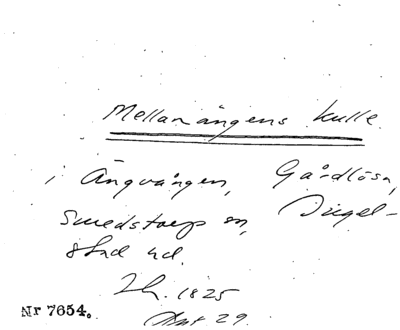 Mellanängens kulle
i Ängvången, Gårdlösa,
Smedstorp sn, Ingel-
stad hd.
Lh. 1825
29.
Nr 7654.